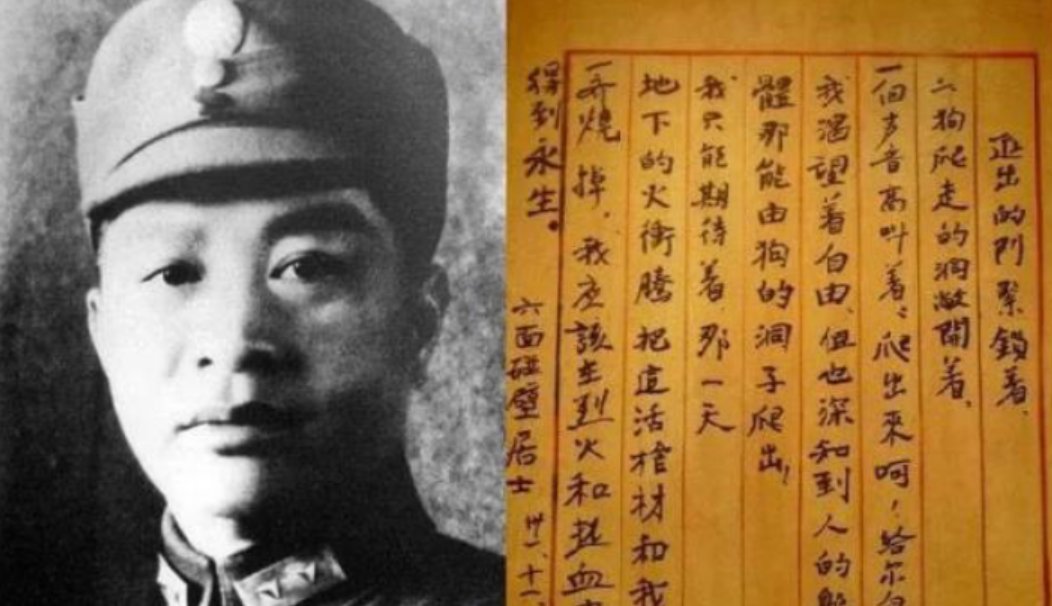 进出的门紧鎖着、
为狗爬走的洞敞開着、
一個声音高叫着:爬出來呵!給尔自
我渴望着自由、但也深知到人的躯
體那能由狗的洞子爬出!
我只能期待着、那一天
地下的火衝騰把這活棺材和我
一齐燒掉,我应該在烈火和热血
得到永生。
六面碰壁居士 卅一、十一、